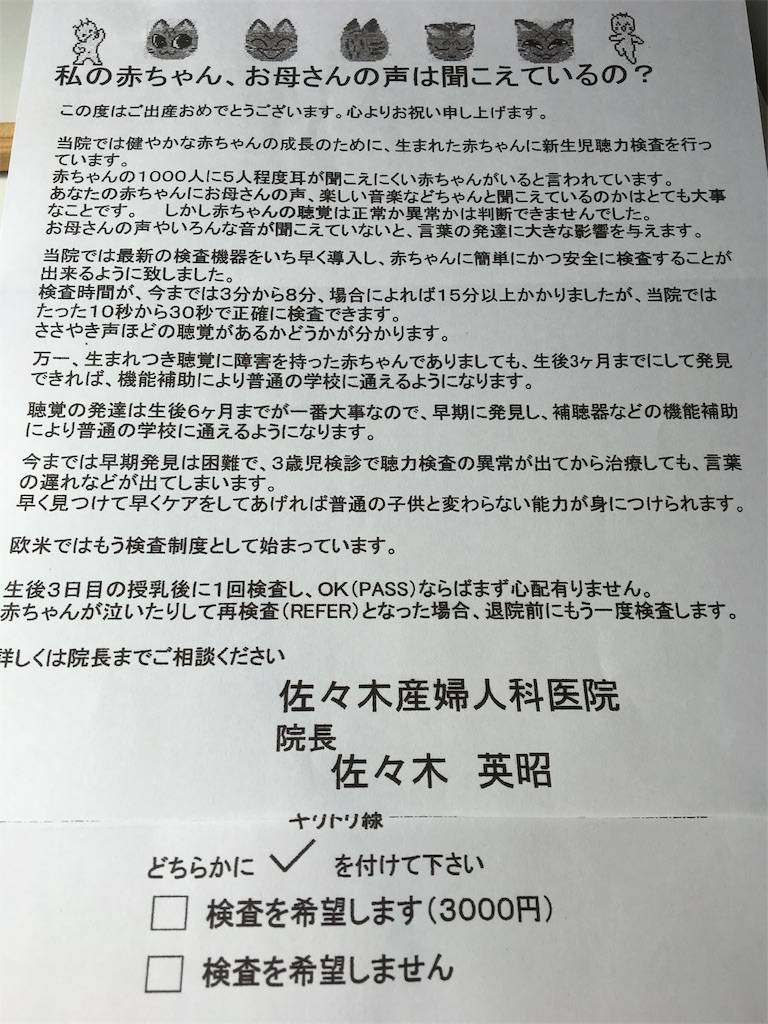 私の赤ちゃん、お母さんの声は聞こえているの？
この度はご出産おめでとうございます。心よりお祝い申し上げます。
当院では健やかな赤ちゃんの成長のために、生まれた赤ちゃんに新生児聴力検査を行っ
ています。
赤ちゃんの１０００人に５人程度耳が聞こえにくい赤ちゃんがいると言われています。
あなたの赤ちゃんにお母さんの声、楽しい音楽などちゃんと聞こえているのかはとても大事
なことです。　しかし赤ちゃんの聴覚は正常か異常かは判断できませんでした。
お母さんの声やいろんな音が聞こえていないと、言葉の発達に大きな影響を与えます。
当院では最新の検査機器をいち早く導入し、赤ちゃんに簡単にかつ安全に検査することが
出来るように致しました。
検査時間が、今までは3分から8分、場合によれば15分以上かかりましたが、当院では
たった１０秒から３０秒で正確に検査できます。
ささやき声ほどの聴覚があるかどうかが分かります。
万一、生まれつき聴覚に障害を持った赤ちゃんでありましても、生後3ヶ月までにして発見
できれば、機能補助により普通の学校に通えるようになります。
聴覚の発達は生後６ヶ月までが一番大事なので、早期に発見し、補聴器などの機能補助
により普通の学校に通えるようになります。
今までは早期発見は困難で、３歳児検診で聴力検査の異常が出てから治療しても、言葉
の遅れなどが出てしまいます。
早く見つけて早くケアをしてあげれば普通の子供と変わらない能力が身につけられます。
欧米ではもう検査制度として始まっています。
生後３日目の授乳後に１回検査し、OK（PASS）ならばまず心配有りません。
赤ちゃんが泣いたりして再検査（REFER）となった場合、退院前にもう一度検査します。
詳しくは院長までご相談ください
佐々木産婦人科医院
院長
佐々木　英昭
キリトリ線
どちらかに ✓ を付けて下さい
□ 検査を希望します（3000円）
□ 検査を希望しません